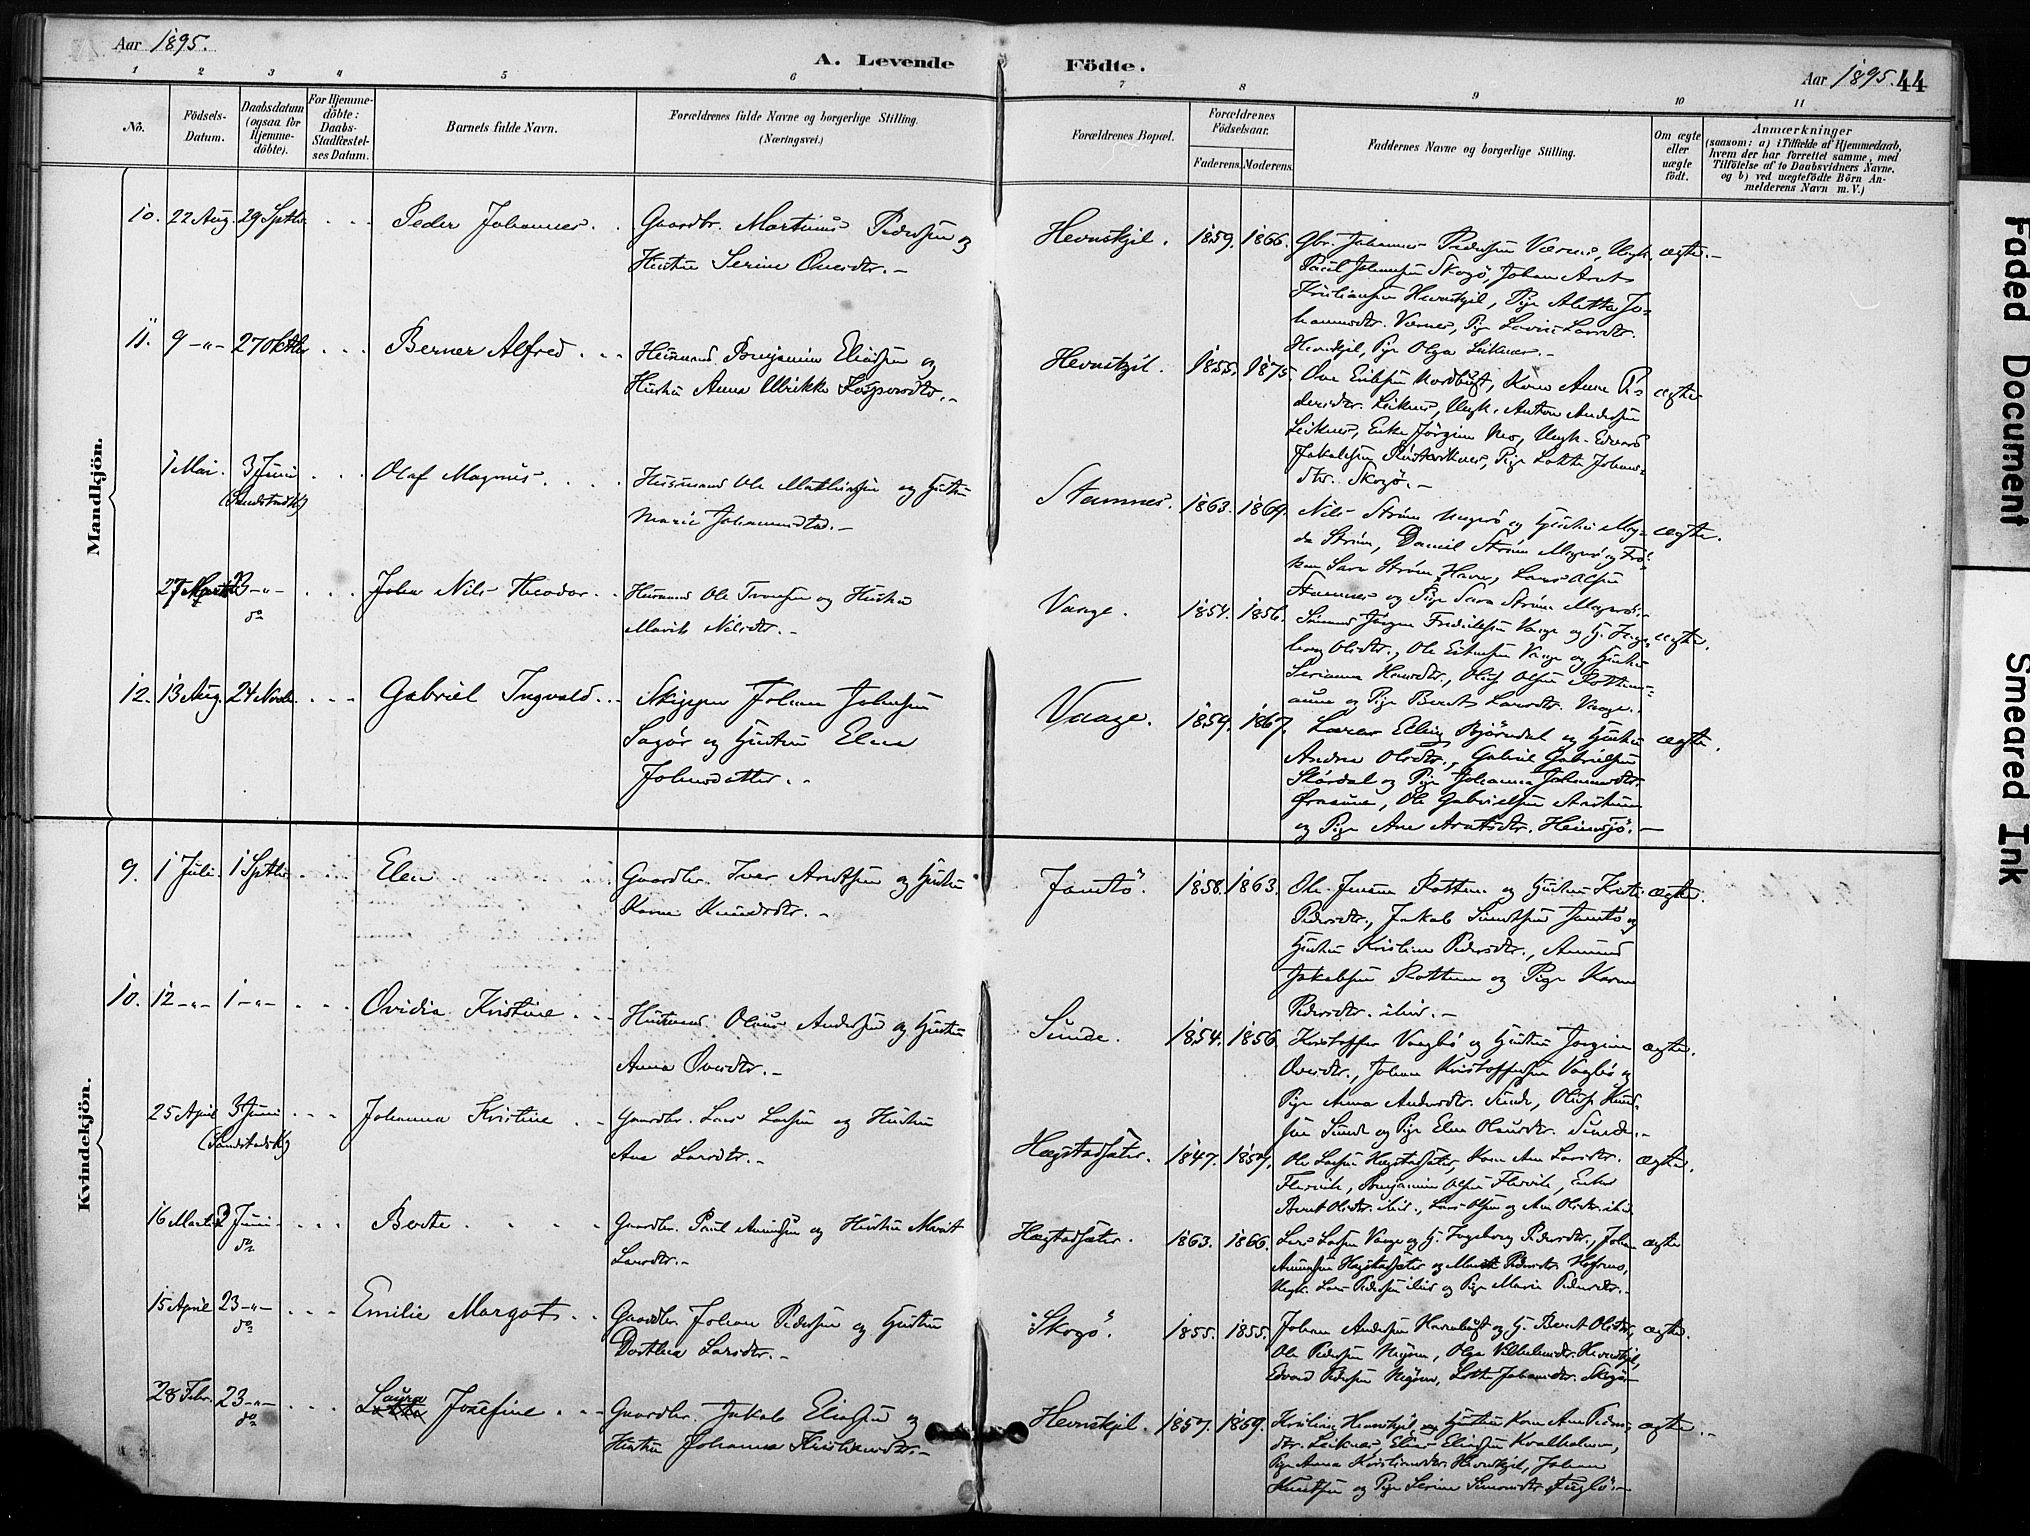 Aar 1895.
A. Levende Födte.
Aar 1895. 44
1 2 3 4 5 6 7 8 9 10 11
No.
Födsels-
Datum.
Daabsdatum
(ogsaa for
Hjemme-
döbte).
For Hjemme-
döbte:
Daabs-
Stadfæstel-
ses Datum.
Barnets fulde Navn.
Forældrenes fulde Navne og borgerlige Stilling.
(Næringsvei.)
Forældrenes Bopæl.
Forældrenes
Födselsaar.
Faderens. Moderens.
Faddernes Navne og borgerlige Stilling.
Om ægte
eller
uægte
födt.
Anmærkninger
(saasom: a) i Tilfælde af Hjemmedaab,
hvem der har forrettet samme, med
Tilföielse af to Daabsvidners Navne,
og b) ved uægtefödte Börn An-
melderens Navn m. V.)
Mandkjön.
10. 22 Aug. 29 Septbr. Peder Johannes. Gaardbr. Martinus Pedersen og
Hustru Serine Ovesdtr.
Hevnskjel. 1859. 1866. Gbr. Johannes Pedersen Værnes, Ungk.
Paul Johnsen Skogö, Johan Arnt
Kristiansen Hevnskjel, Pige Aletta Jo-
hannesdtr. Værnes, Pige Lovise Larsdtr.
Hevnskjel, Pige Olga Leiknes.
ægte.
11. 9 -"- 27 Oktbr. Berner Alfred Husmand Benjamin Eliasen og
Hustru Anna Ulrikke Kaspersdtr.
Hevnskjel. 1855. 1875. Ove Eriksen Nordbust, Kone Anne Pe-
dersdtr. Leiknes, Ungk. Anton Andersen
Leiknes, Enke Jörgine Mo, Ungk. Edvard
Jakobsen Leiknes, Pige Lotte Johans-
dtr. Skogö.
ægte
1 Mai. 3 Juni (Sandstad K) Olaf Magnus Husmand Ole Mathiasen og Hustru
Marie Johannesdtr.
Stamnes. 1863. 1869. Nils Ström Magerö og Hustru Mag-
da Ström, Daniel Ström Magerö og Frö-
ken Sara Ström Havn, Lars Olsen
Stamnes og Pige Sara Ström Magerö.
ægte.
27 Marts 23 -"- do Johan Nils Theodor Husmand Ole Tronsen og Hustru
Marit Nilsdtr.
Vaage. 1854. 1856. Jörgen Fredriksen Vaage og H. Inge-
borg Olsdtr., Ole Estensen Vaage og Hustru
Serianna Hansdtr., Oluf Olsen Rottem-
aune og Pige Beret Larsdtr. Vaage.
ægte.
12. 13 Aug. 24 Novbr. Gabriel Ingvald Skipper Johan Johnsen
Sagör og Hustru Elen
Johnsdatter.
Vaage. 1859. 1867. Lærer Elling Björndal og Hustru
Andrea Olsdtr., Gabriel Gabrielsen
Skårdal og Pige Johanna Johannesdtr.
Ørnaune, Ole Gabrielsen Aastun
og Pige Ane Arntsdtr. Heimsjö.
ægte.
Kvindekjön.
9. 1 Juli 1 Septbr. Elen Gaardbr. Iver Arntsen og Hustru
Karen Knudsdtr.
Jamtö. 1858. 1863. Ole Jensen Rottem og Hustru Kirsti
Pedersdtr., Jakob Simonsen Jamtö og
Hustru Kristine Pedersdtr., Amund
Jakobsen Rottem og Pige Karen
Pedersdtr. ibid.
ægte.
10. 12 -"- 1 -"- Ovidia Kristine Husmand Olaus Andersen og Hustru
Anna Ovesdtr.
Sunde. 1854. 1856. Kristoffer Vaagbö og Hustru Jorgine
Ovesdtr., Johan Kristoffersen Vagbö og
Pige Anna Andersdtr. Sunde, Oluf Knud-
sen Sunde og Pige Elen Olausdtr. Sunde.
ægte.
25 April 3 Juni (Sandstad K) Johanna Kristine Gaardbr. Lars Larsen og Hustru
Ane Larsdtr.
Hægstadsæter. 1847. 1857. Ole Larsen Hægstadsæter, Kone Ane Larsdtr.
Flesvik, Benjamin Olsen Flesvik, Enke
Beret Olsdtr. ibid., Lars Olsen og Ane Olsdtr. ibid.
ægte.
16 Marts 2 Juni do Berte Gaardbr. Paul Amundsen og Hustru Marit
Larsdtr.
Hægstadsæter. 1863. 1866. Lars Larsen Vaage og H. Ingeborg Pedersdtr., Johan
Amundsen Hægstadsæter og Marit Pedersdtr. Hofsnes,
Ungk. Lars Pedersen ibid og Pige Marie Pedersdtr.
ægte
15 April 23 -"- do Emilie Margot Gaardbr. Johan Pedersen og Hustru
Dorthea Larsdtr.
Skogö. 1855. 1855. Johan Andersen Havnbust og H. Beret Olsdtr.,
Ole Pedersen Nygjøen, Olga Vilhelmsdtr. Hevnskjel,
Edvard Pedersen, Lotte Johansdtr. Skogö
ægte.
28 Febr. 23 -"- do Laura Josefine Gaardbr. Jakob Eliasen og
Hustru Johanna Kristiansdtr.
Hevnskjel. 1857. 1859. Kristian Hevnskjel og Hustru Karen Ane Peders-
dtr. Leiknes, Elias Eliassen Kvalholmen,
Pige Anna Kristiansdtr. Hevnskjel, Johan
Knutsen og Pige Serine Simonsdtr. Fuglö.
ægte.
Faded Document
Smeared Ink